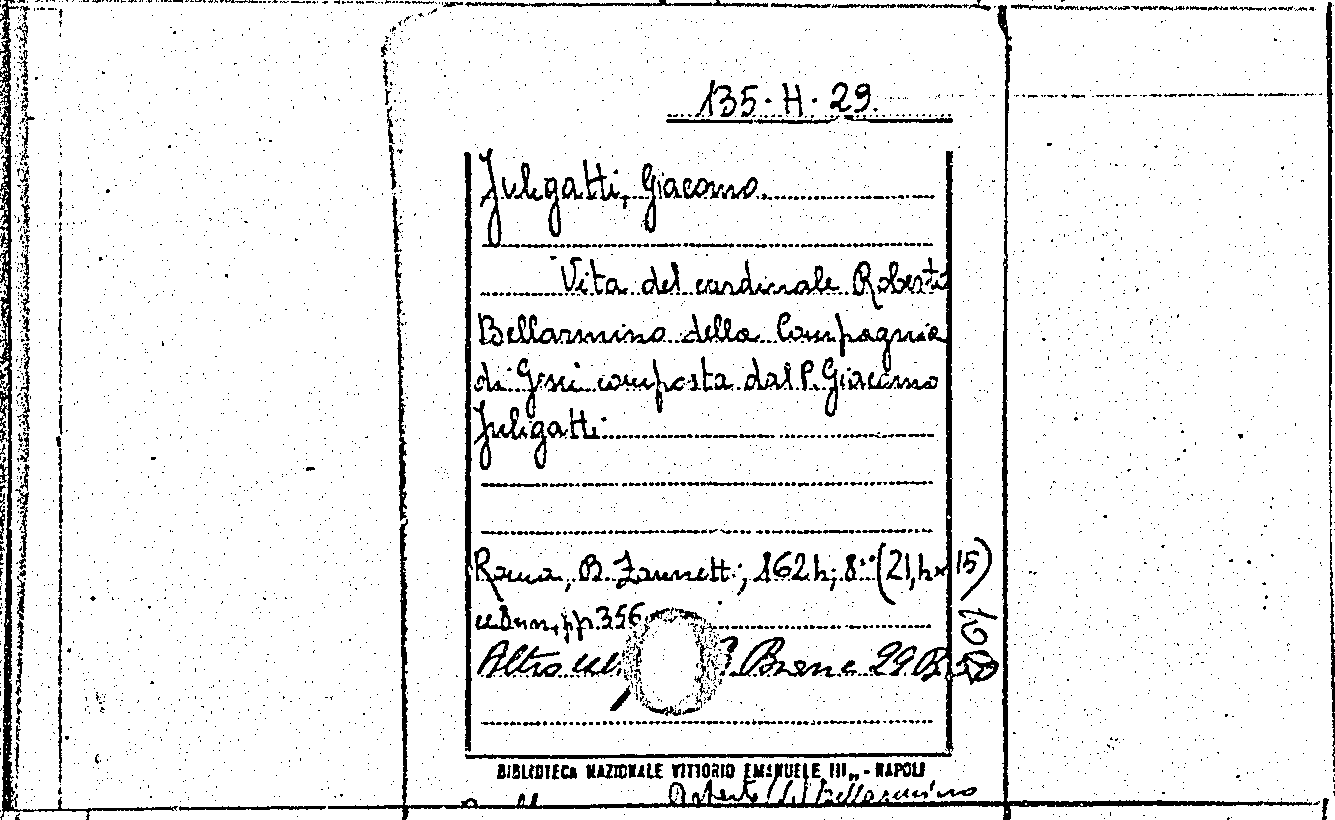 135·H·29.
Fuligatti, Giacomo.
Vita del cardinale Roberto
Bellarmino della Compagnia
di Gesù composta dal P. Giacomo
Fuligatti.
Roma, B. Zannetti; 1624; 8° (21,4x15)
pp. 356
Altro es. Branc. 29 B 50
BIBLIOTECA NAZIONALE VITTORIO EMANUELE III„ - NAPOLI
Roberto (s.) Bellarmino